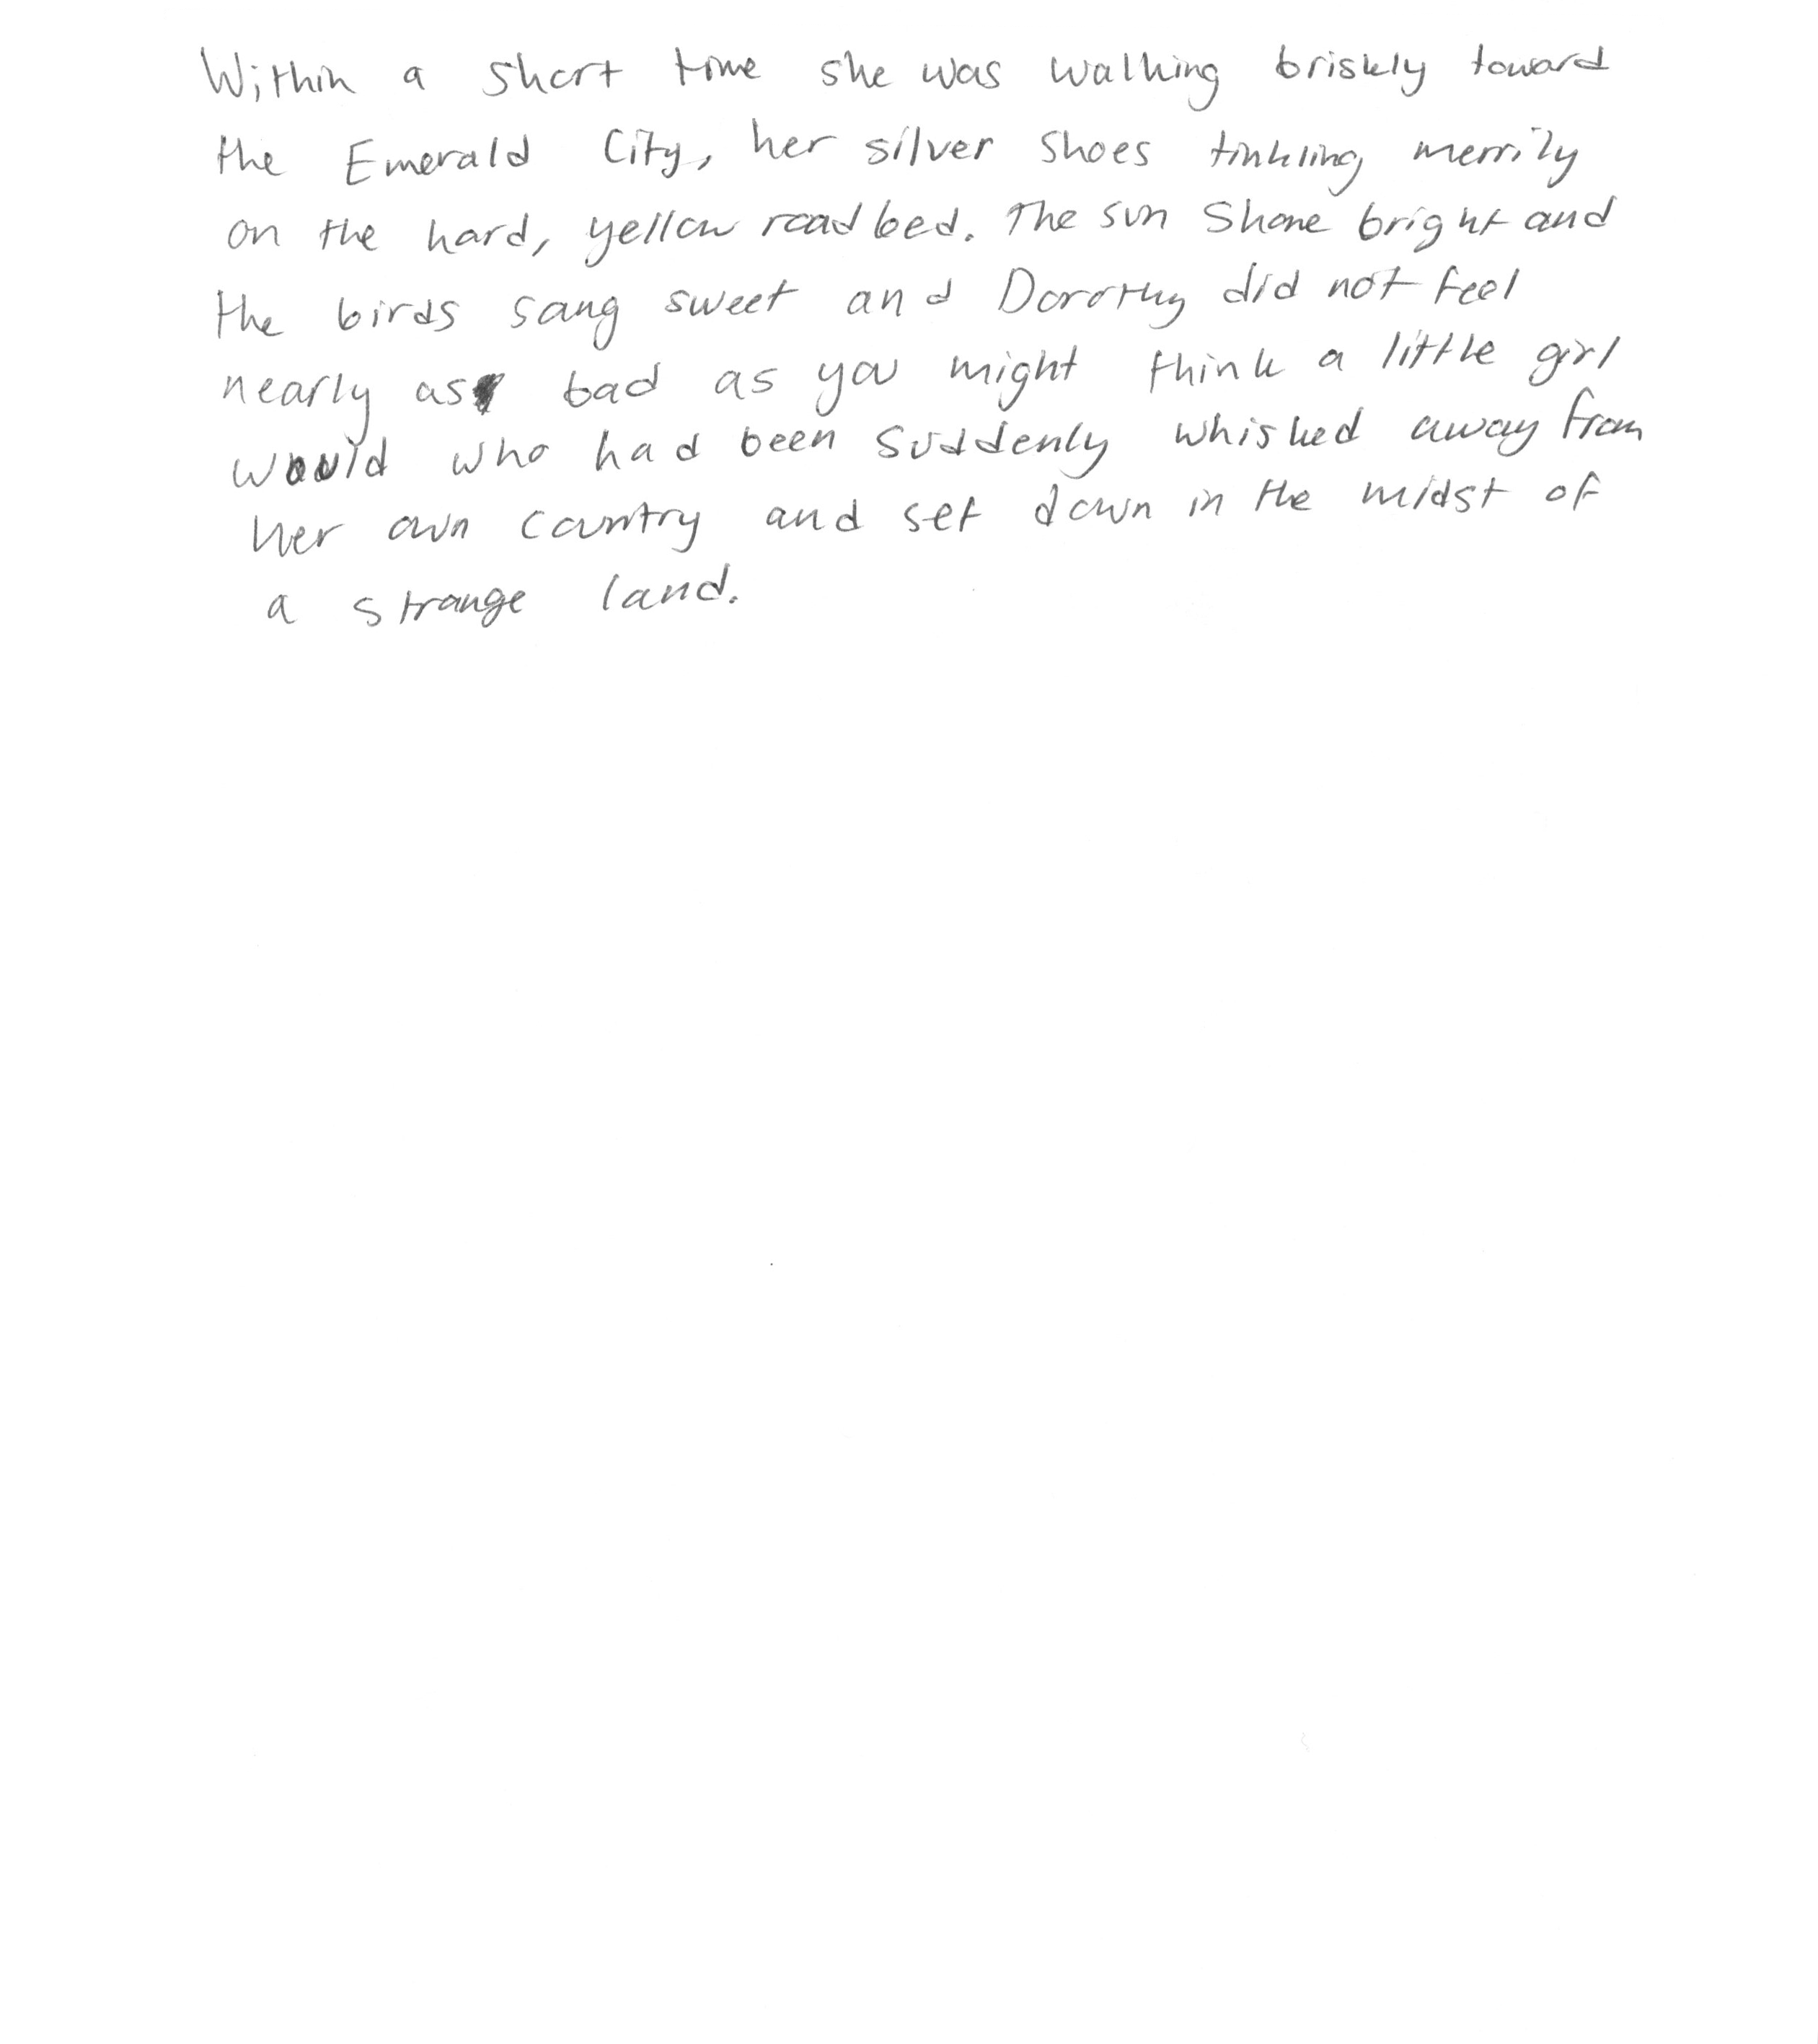 Within a short time she was walking briskly toward
the Emerald City, her silver shoes tinkling merrily
on the hard, yellow roadbed. The sun shone bright and
the birds sang sweet and Dorothy did not feel
nearly as bad as you might think a little girl
would who had been suddenly whisked away from
her own country and set down in the midst of
a strange land.